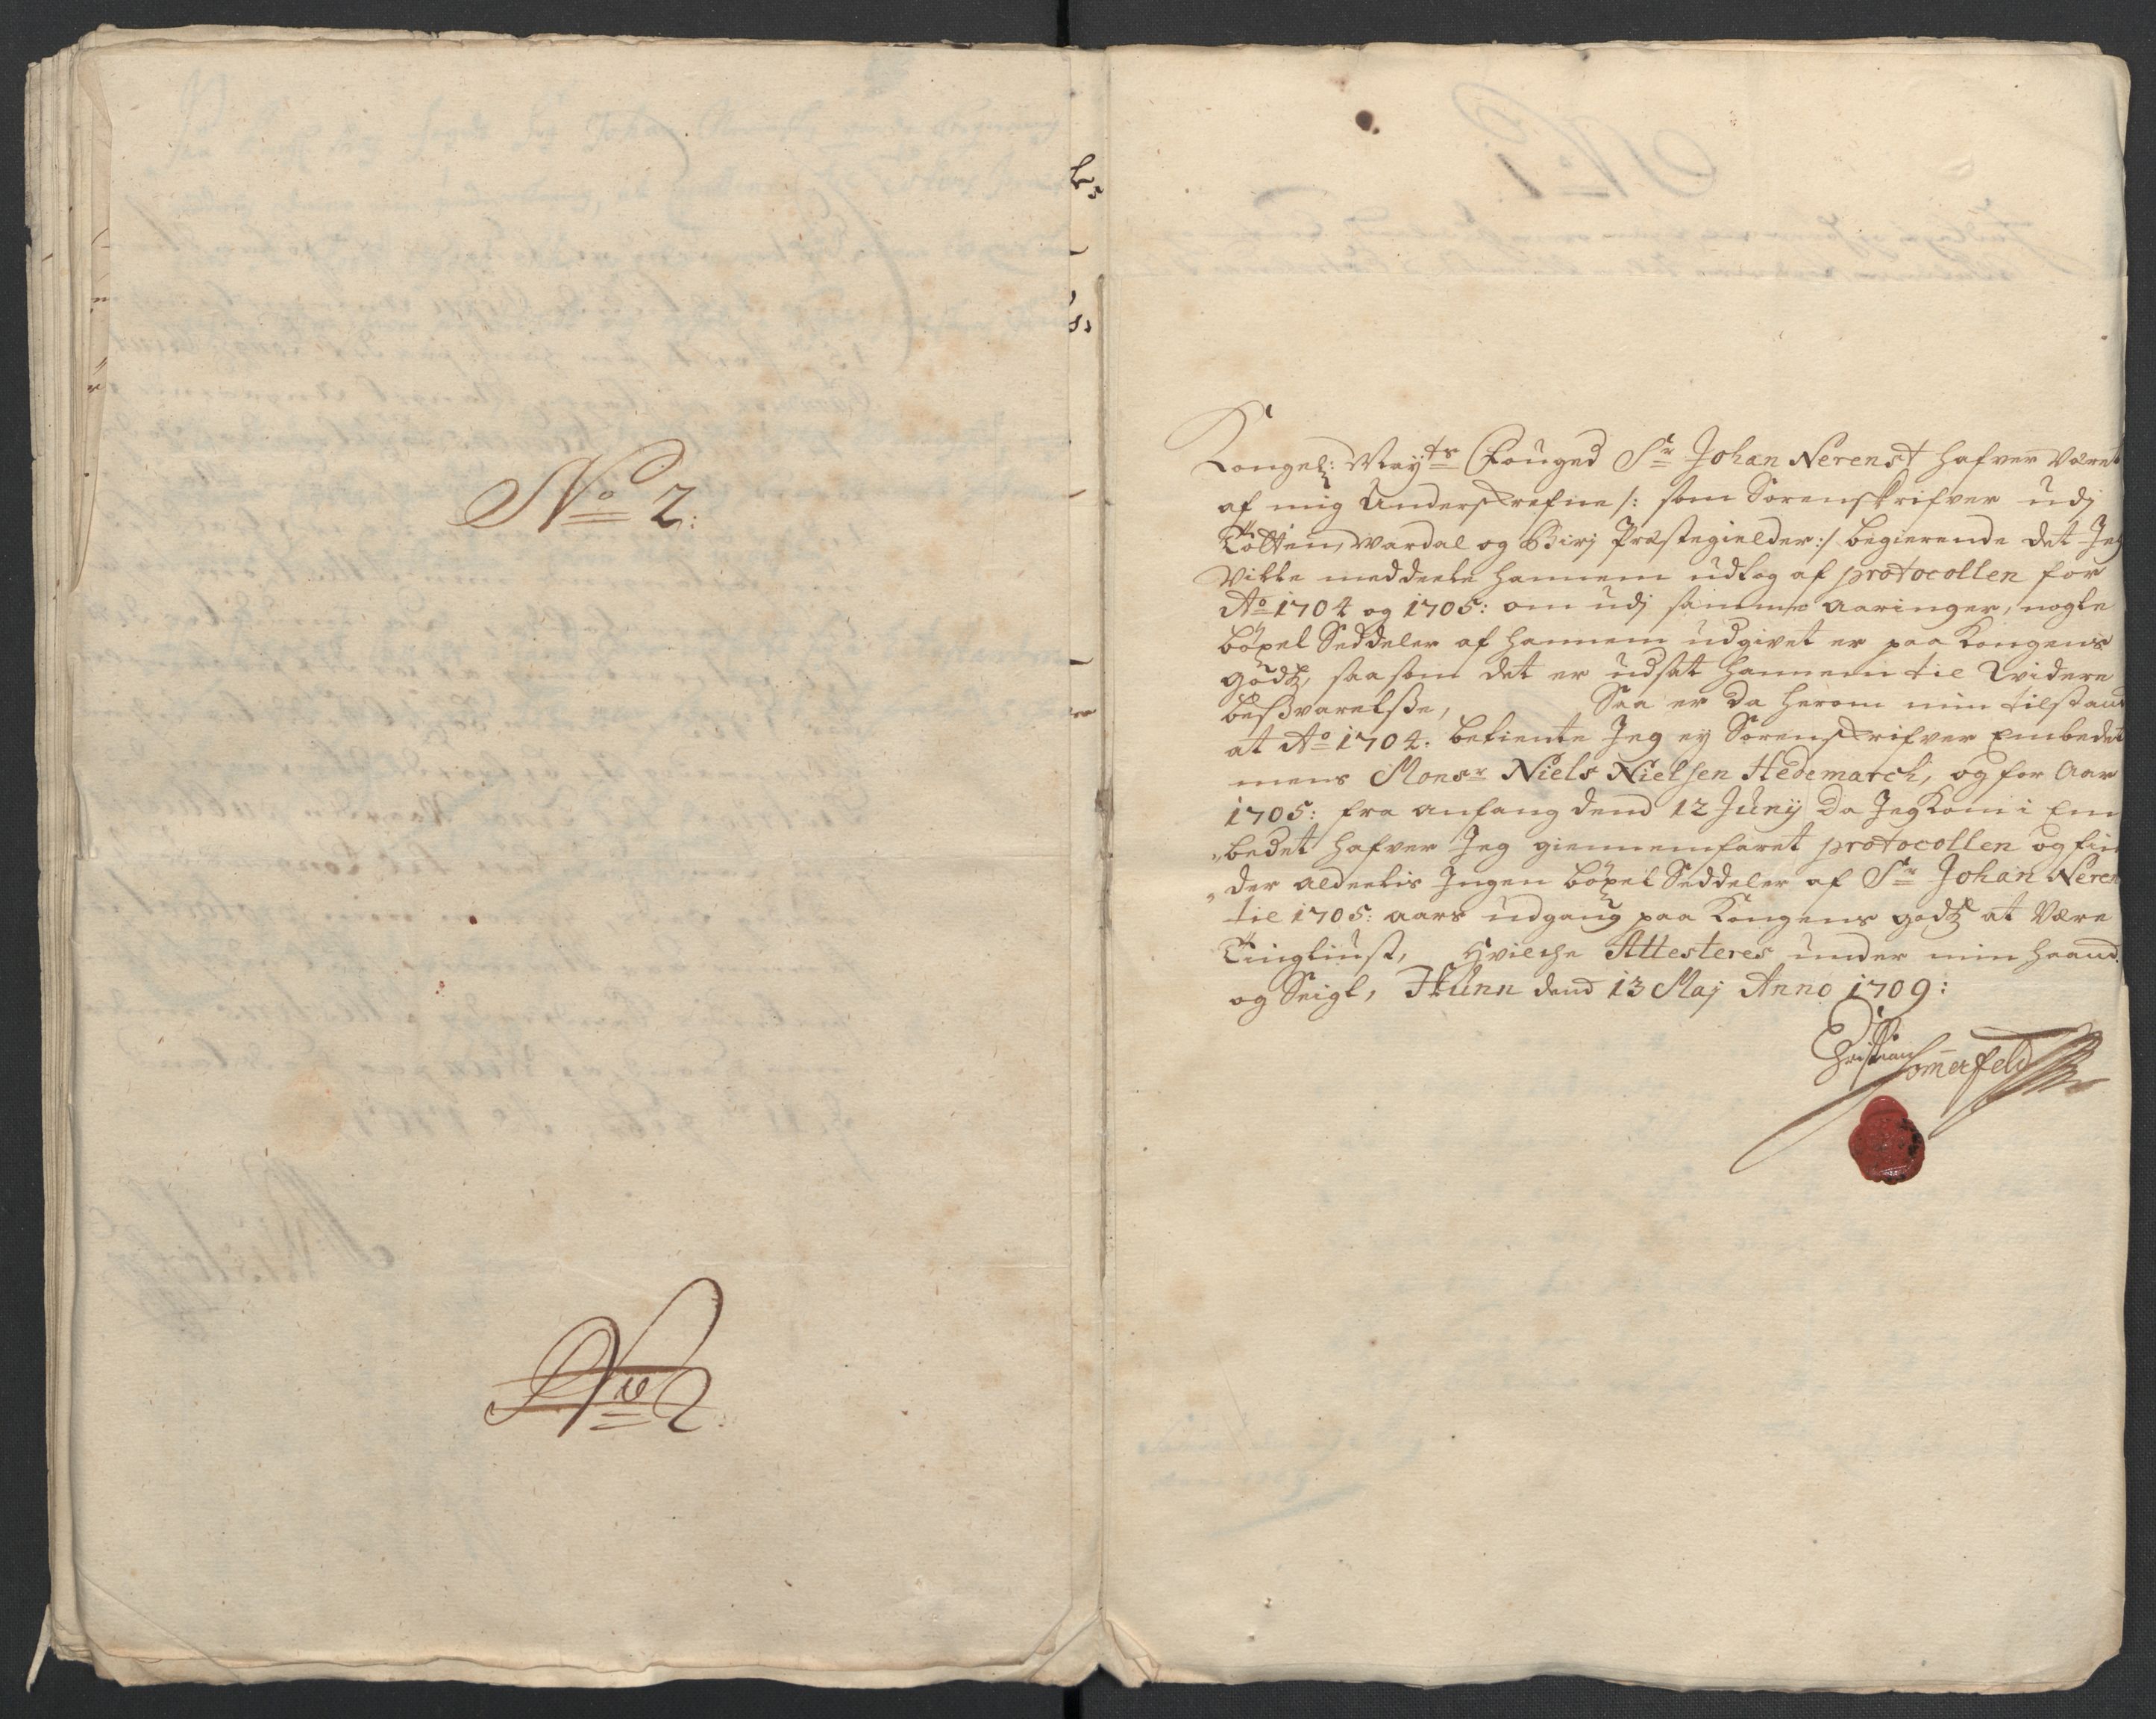 No 2:
No 2.
Kongel: Mayts Fouged Sr Johan Nerenst hafver været
af mig Underskrefne /: som Sorenskrifver udj
Totten, Wardal og Birj Præstegielder :/ begierende det Jeg
Ville meddeele hannem udtog af protocollen for
Ao 1704 og 1705: om udj samme aaringer, nogle
böxel Seddeler af hannem udgivet er paa Kongens
godtz, saasom det er udsat hannem til Widere
besswarelsse, Saa er da herom min tilstaae
at Ao 1704. betiente Jeg ey Sorenskrifver Embedet
mens Monsr Niels Nielsen Hedemarck, og for Aar
1705: fra anfang dend 12 Junij da Jeg kom i Em
"bedet hafver Jeg giennemfaret protocollen og fin
"der aldeelis Ingen böxel Seddeler af Sr Johan Neren
til 1705: aars udgang paa Kongens godtz at Være
Tingliust, Hvilche Attesteres under min haand
og Seigl, Hunn dend 13 Maj Anno 1709:
Christian Sommerfeld